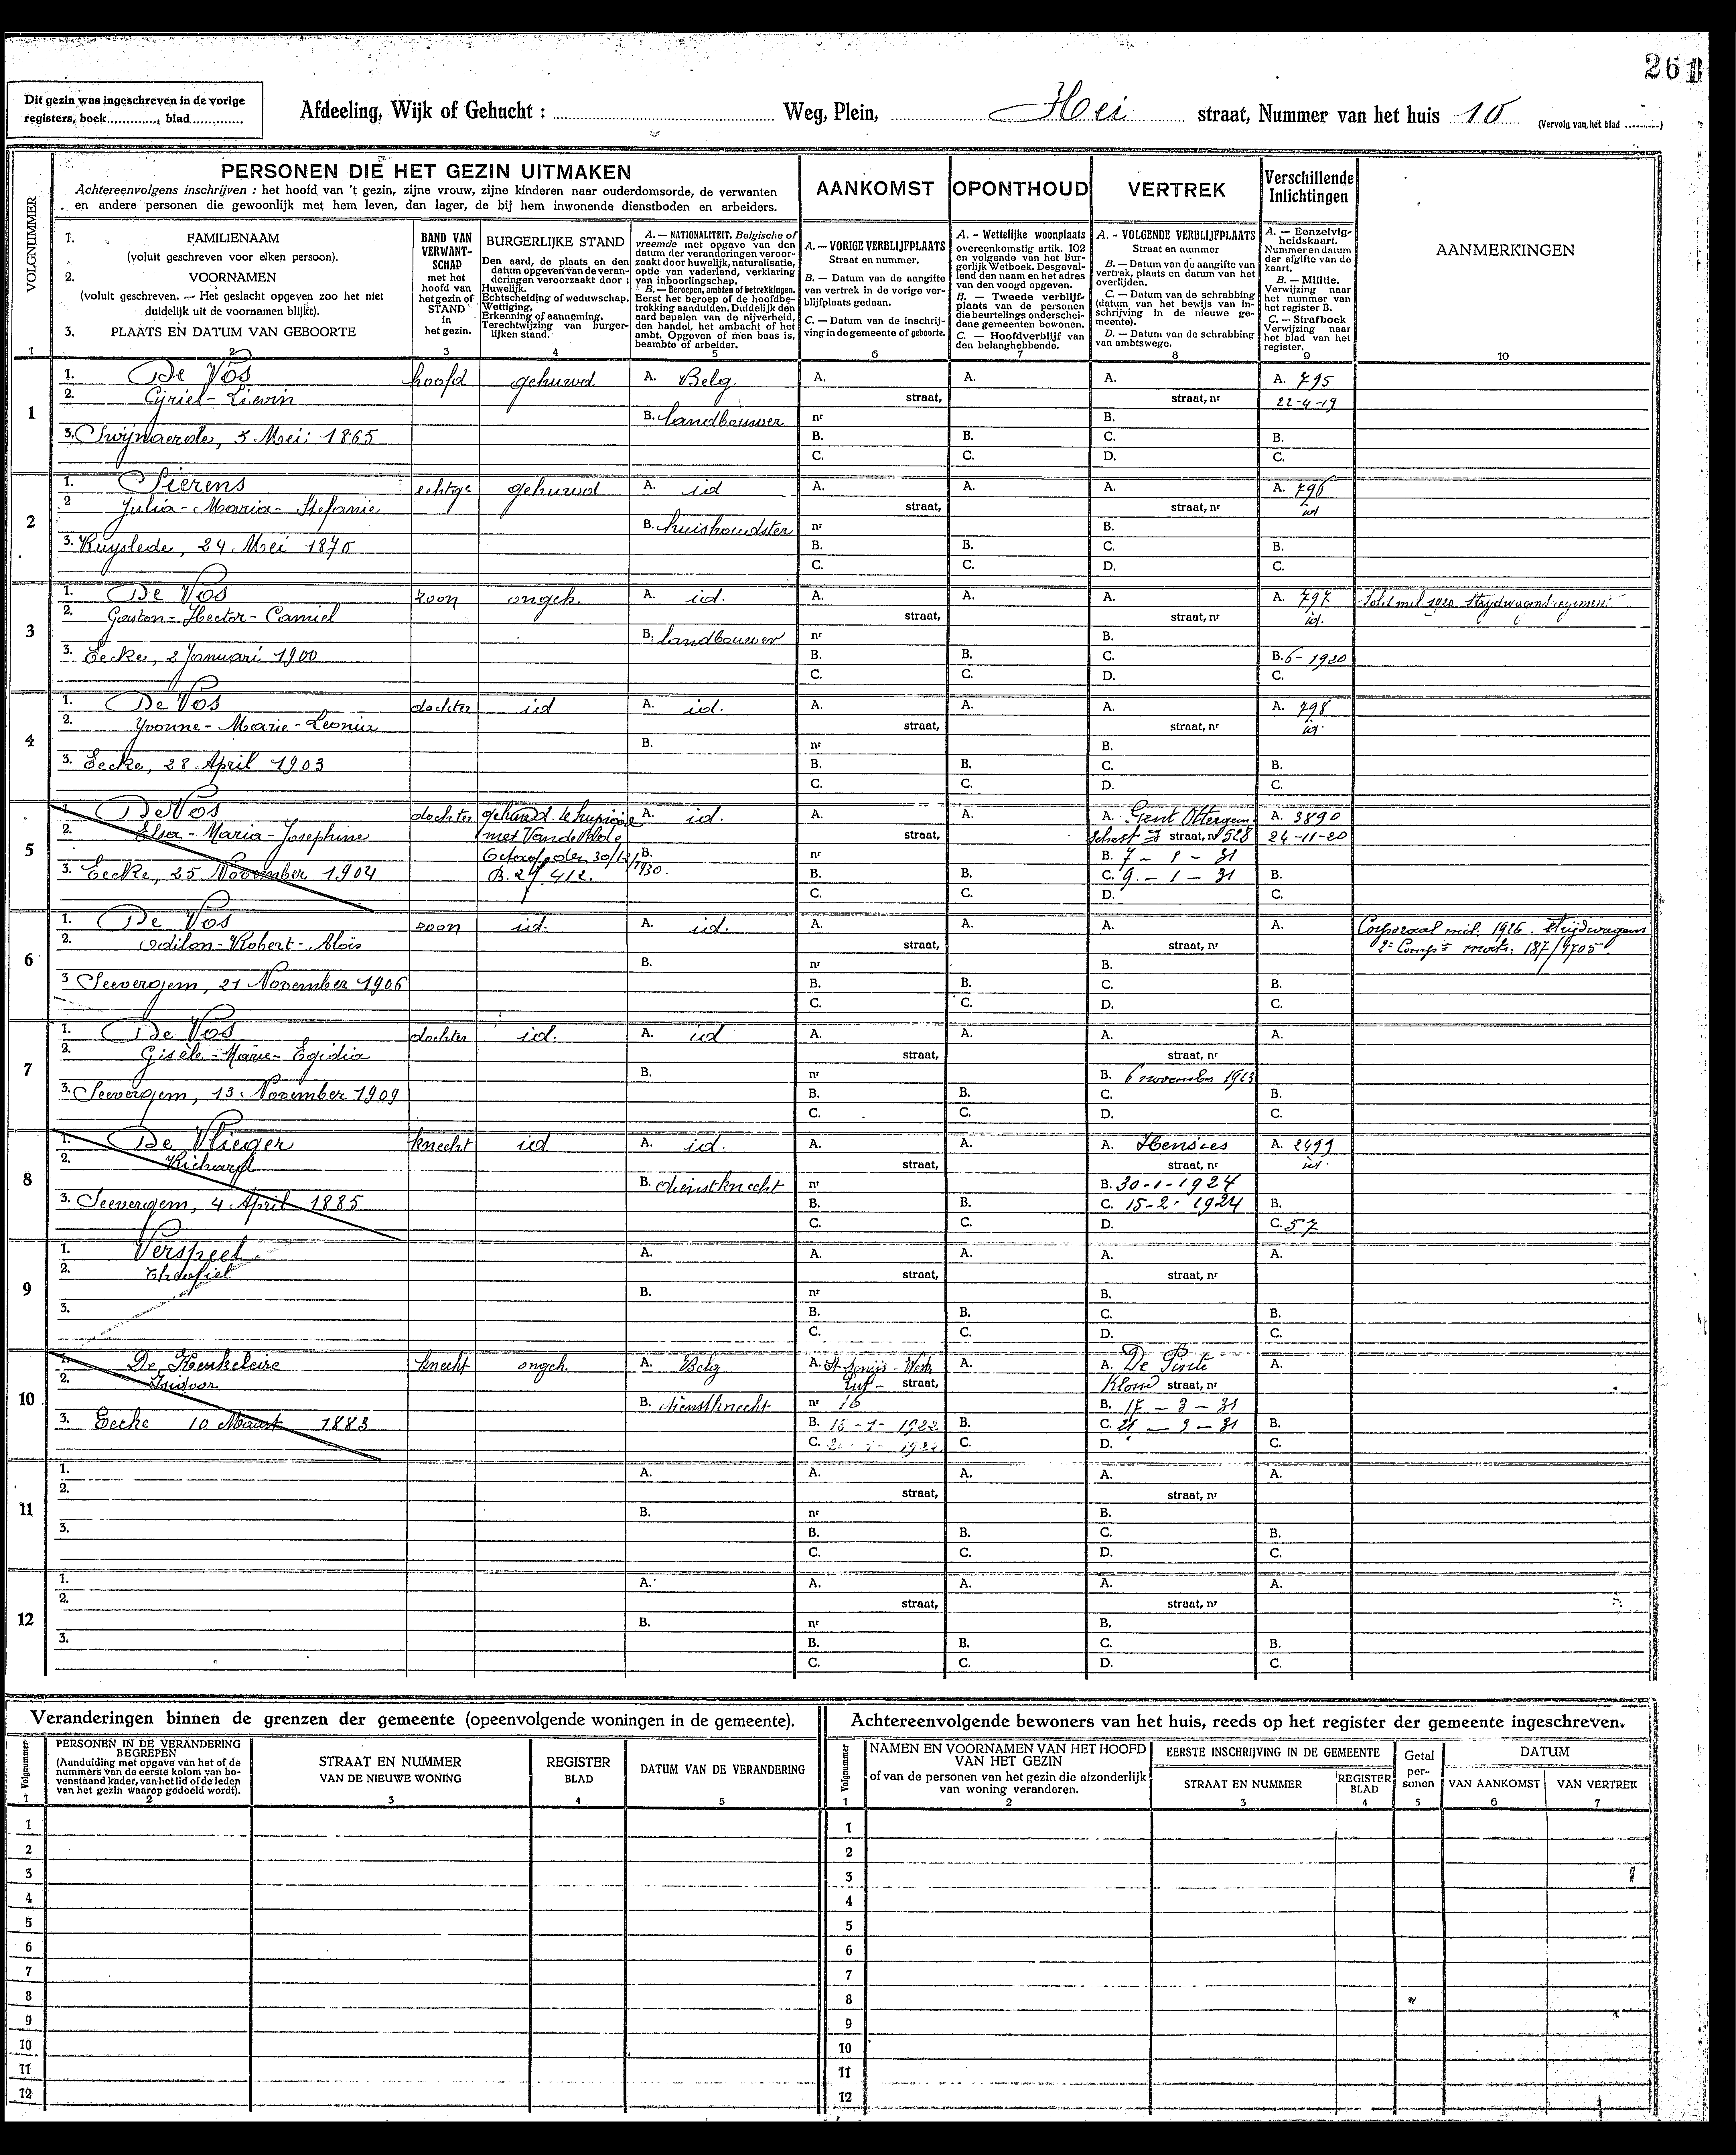 261
Dit gezin was ingeschreven in de vorige
registers, boek............, blad..............
Afdeeling, Wijk of Gehucht : ........ Weg, Plein, ........ Hei ........ straat, Nummer van het huis 10 (Vervolg van het blad ..........)
VOLGNUMMER
PERSONEN DIE HET GEZIN UITMAKEN
Achtereenvolgens inschrijven : het hoofd van 't gezin, zijne vrouw, zijne kinderen naar ouderdomsorde, de verwanten
en andere personen die gewoonlijk met hem leven, dan lager, de bij hem inwonende dienstboden en arbeiders.
1. FAMILIENAAM
(voluit geschreven voor elken persoon).
2. VOORNAMEN
(voluit geschreven. — Het geslacht opgeven zoo het niet
duidelijk uit de voornamen blijkt).
3. PLAATS EN DATUM VAN GEBOORTE
BAND VAN
VERWANT-
SCHAP
met het
hoofd van
het gezin of
STAND
in
het gezin.
BURGERLIJKE STAND
Den aard, de plaats en den
datum opgeven van de veran-
deringen veroorzaakt door :
Huwelijk.
Echtscheiding of weduwschap.
Wettiging.
Erkenning of aanneming.
Terechtwijzing van burger-
lijken stand.
A. — NATIONALITEIT. Belgische of
vreemde met opgave van den
datum der veranderingen veroor-
zaakt door huwelijk, naturalisatie,
optie van vaderland, verklaring
van inboorlingschap.
B. — Beroepen, ambten of betrekkingen.
Eerst het beroep of de hoofdbe-
trekking aanduiden. Duidelijk den
aard bepalen van de nijverheid,
den handel, het ambacht of het
ambt. Opgeven of men baas is,
beambte of arbeider.
AANKOMST
A. — VORIGE VERBLIJFPLAATS
Straat en nummer.
B. — Datum van de aangifte
van vertrek in de vorige ver-
blijfplaats gedaan.
C. — Datum van de inschrij-
ving in de gemeente of geboorte.
OPONTHOUD
A. - Wettelijke woonplaats
overeenkomstig artik. 102
en volgende van het Bur-
gerlijk Wetboek. Desgeval-
lend den naam en het adres
van den voogd opgeven.
B. — Tweede verblijf-
plaats van de personen
die beurtelings onderschei-
dene gemeenten bewonen.
C. — Hoofdverblijf van
den belanghebbende.
VERTREK
A. - VOLGENDE VERBLIJFPLAATS
Straat en nummer
B. — Datum van de aangifte van
vertrek, plaats en datum van het
overlijden.
C. — Datum van de schrabbing
(datum van het bewijs van in-
schrijving in de nieuwe ge-
meente).
D. — Datum van de schrabbing
van ambtswege.
Verschillende
Inlichtingen
A. — Eenzelvig-
heidskaart.
Nummer en datum
der afgifte van de
kaart.
B. — Militie.
Verwijzing naar
het nummer van
het register B.
C. — Strafboek
Verwijzing naar
het blad van het
register.
AANMERKINGEN
1 2 3 4 5 6 7 8 9 10
1
1. De Vos hoofd gehuwd A. Belg A. A. A. A. 795
2. Cyriel-Lievin straat, straat, nr 22-4-19
B. landbouwer nr B.
3. Swijnaerde, 5 Mei 1865 B. B. C. B.
C. C. D. C.
2
1. Sierens echtge gehuwd A. id A. A. A. A. 796
2 Julia-Maria-Stefanie straat, straat, nr id
B. huishoudster nr B.
3. Ruyslede, 24 Mei 1870 B. B. C. B.
C. C. D. C.
3
1. De Vos zoon ongeh. A. id. A. A. A. A. 797 Sold. mil. 1920 Strijdwagensregiment
2. Gaston-Hector-Camiel straat, straat, nr id.
B. landbouwer nr B.
3. Eecke, 2 Januari 1900 B. B. C. B. 6-1920
C. C. D. C.
4
1. De Vos dochter id A. id. A. A. A. A. 798
2. Yvonne-Marie-Leonie straat, straat, nr id.
B. nr B.
3. Eecke, 28 April 1903 B. B. C. B.
C. C. D. C.
5
1. De Vos dochter A. id. A. A. A. Gent A. 3890
2. Elsa-Maria-Josephine met straat, straat, nr 528 24-11-20
den 30/12/1930. B. nr B. 7 - 1 - 31
3. Eecke, 25 November 1904 B. B. C. 9 - 1 - 31 B.
C. C. D. C.
6
1. De Vos zoon id. A. id. A. A. A. A. Corporaal mil. 1926. Strijdwagens
2. Odilon-Robert-Aloïs straat, straat, nr 2e Compie matr. 187/
B. nr B.
3 Seevergem, 21 November 1906 B. B. C. B.
C. C. D. C.
7
1. De Vos dochter id. A. id A. A. A. A.
2. Gisèle-Marie-Egidia straat, straat, nr
B. nr B. 6 november
3. Seevergem, 13 November 1909 B. B. C. B.
C. C. D. C.
8
1. De Vlieger knecht id A. id. A. A. A. Hensies A. 2499
2. Richard straat, straat, nr id.
B. dienstknecht nr B. 30-1-1924
3. Seevergem, 4 April 1885 B. B. C. 15-2-1924 B.
C. C. D. C. 57
9
1. Verspeel A. A. A. A. A.
2. straat, straat, nr
B. nr B.
3. B. B. C. B.
C. C. D. C.
10
1. De knecht ongeh. A. Belg A. St Denijs-West A. A. De Pinte A.
2. Isidoor straat, straat, nr
B. dienstknecht nr 16 B. 17 - 3 - 31
3. Eecke 10 Maart 1883 B. 16-1-1922 B. C. 21 - 3 - 31 B.
C. 1922 C. D. C.
11
1. A. A. A. A. A.
2. straat, straat, nr
B. nr B.
3. B. B. C. B.
C. C. D. C.
12
1. A. A. A. A. A.
2. straat, straat, nr
B. nr B.
3. B. B. C. B.
C. C. D. C.
Veranderingen binnen de grenzen der gemeente (opeenvolgende woningen in de gemeente).
Volgnummer
PERSONEN IN DE VERANDERING
BEGREPEN
(Aanduiding met opgave van het of de
nummers van de eerste kolom van bo-
venstaand kader, van het lid of de leden
van het gezin waarop gedoeld wordt).
STRAAT EN NUMMER
VAN DE NIEUWE WONING
REGISTER
BLAD
DATUM VAN DE VERANDERING
1 2 3 4 5
1
2
3
4
5
6
7
8
9
10
11
12
Achtereenvolgende bewoners van het huis, reeds op het register der gemeente ingeschreven.
Volgnummer
NAMEN EN VOORNAMEN VAN HET HOOFD
VAN HET GEZIN
of van de personen van het gezin die afzonderlijk
van woning veranderen.
EERSTE INSCHRIJVING IN DE GEMEENTE
STRAAT EN NUMMER
REGISTER
BLAD
Getal
per-
sonen
DATUM
VAN AANKOMST VAN VERTREK
1 2 3 4 5 6 7
1
2
3
4
5
6
7
8
9
10
11
12